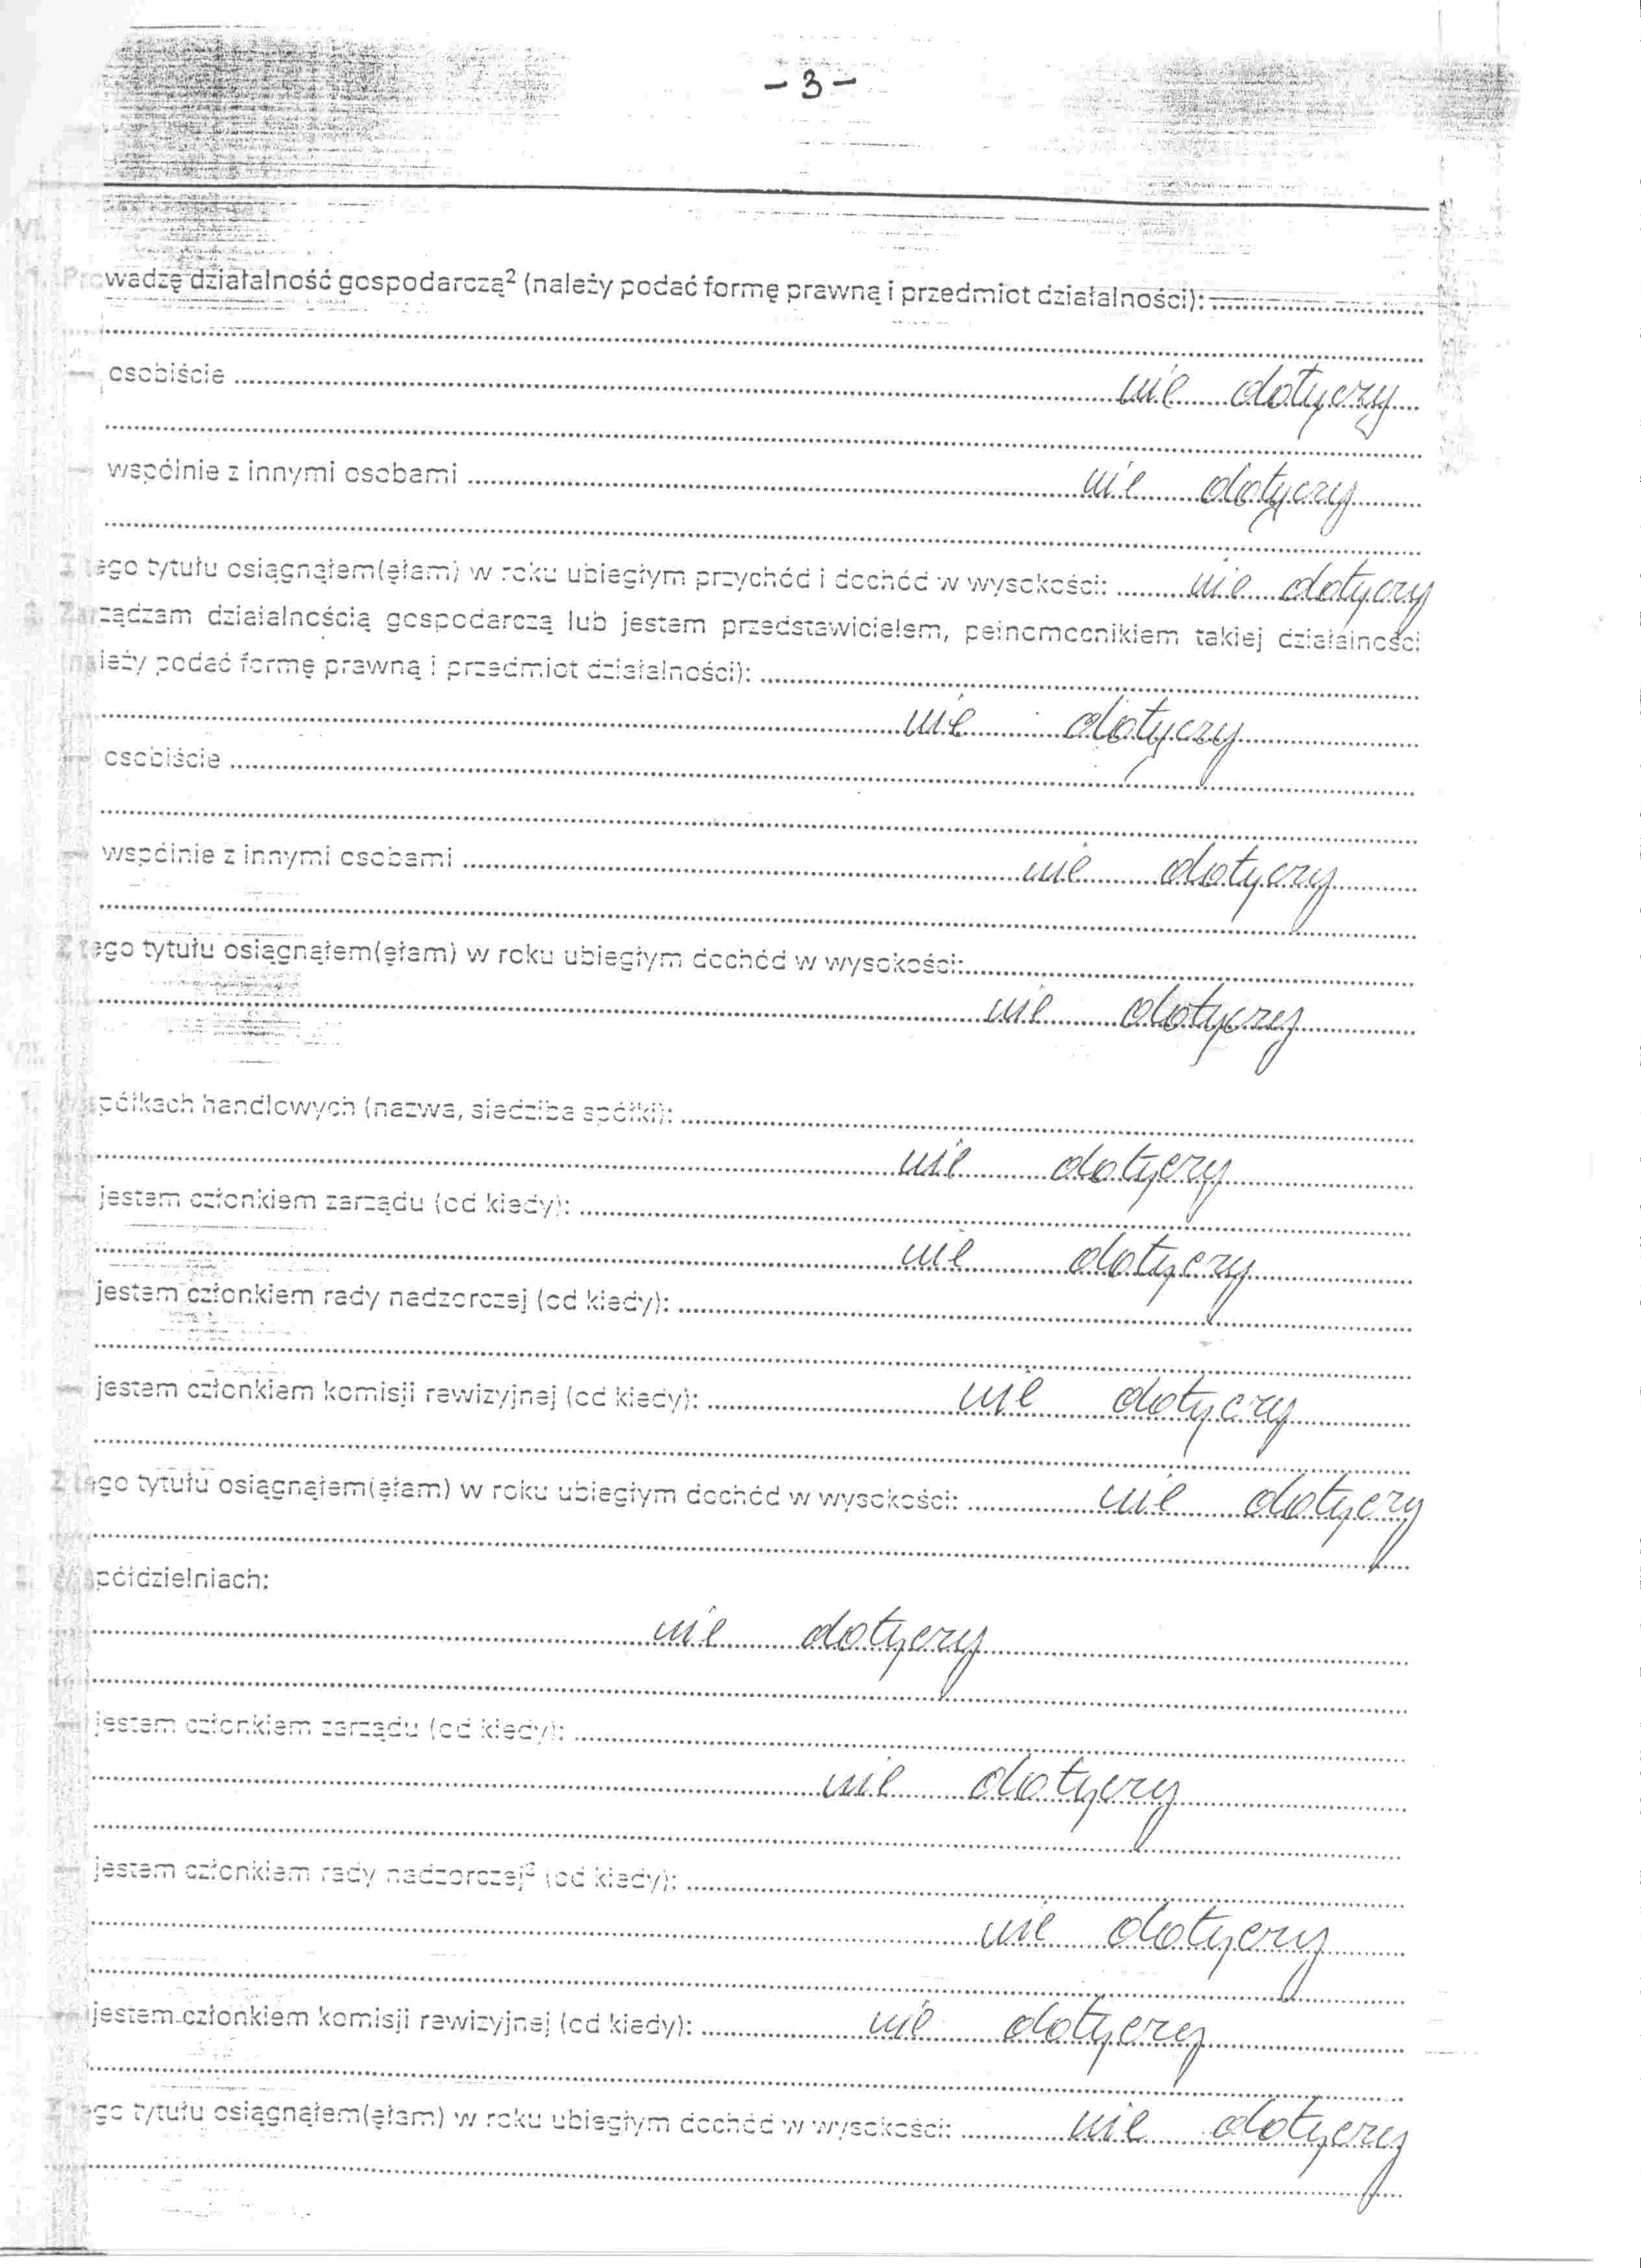 - 3 -
VI.
1. Prowadzę działalność gospodarczą² (należy podać formę prawną i przedmiot działalności):
— osobiście nie dotyczy
— wspólnie z innymi osobami nie dotyczy
Z tego tytułu osiągnąłem(ęłam) w roku ubiegłym przychód i dochód w wysokości: nie dotyczy
2. Zarządzam działalnością gospodarczą lub jestem przedstawicielem, pełnomocnikiem takiej działalności
(należy podać formę prawną i przedmiot działalności):
nie dotyczy
— osobiście
— wspólnie z innymi osobami nie dotyczy
Z tego tytułu osiągnąłem(ęłam) w roku ubiegłym dochód w wysokości:
nie dotyczy
VII.
1. W spółkach handlowych (nazwa, siedziba spółki):
nie dotyczy
— jestem członkiem zarządu (od kiedy):
nie dotyczy
— jestem członkiem rady nadzorczej (od kiedy):
— jestem członkiem komisji rewizyjnej (od kiedy): nie dotyczy
Z tego tytułu osiągnąłem(ęłam) w roku ubiegłym dochód w wysokości: nie dotyczy
2. W spółdzielniach:
nie dotyczy
— jestem członkiem zarządu (od kiedy):
nie dotyczy
— jestem członkiem rady nadzorczej³ (od kiedy):
nie dotyczy
— jestem członkiem komisji rewizyjnej (od kiedy): nie dotyczy
Z tego tytułu osiągnąłem(ęłam) w roku ubiegłym dochód w wysokości: nie dotyczy